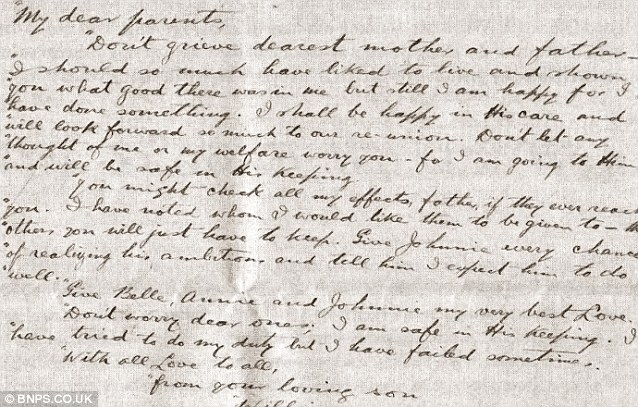 "My dear parents,
"Don't grieve dearest mother and father –
"I should so much have liked to live and shown
"you what good there was in me but still I am happy for I
"have done something. I shall be happy in His care and
"will look forward so much to our re-union. Don't let any
"thought of me or my welfare worry you – fo I am going to Him
"and will be safe in His keeping.
"You might check all my effects, father, if they ever reac
"you. I have noted whom I would like them to be given to – th
"others you will just have to keep. Give Johnnie every chance
"of realizing his ambitions and tell him I expect him to do
"well..
Give Belle, Annie and Johnnie my very best Love.
Dont worry dear ones; I am safe in His keeping. I
"have tried to do my duty but I have failed sometimes.
"With all Love to all,
"from your loving son
© BNPS.CO.UK